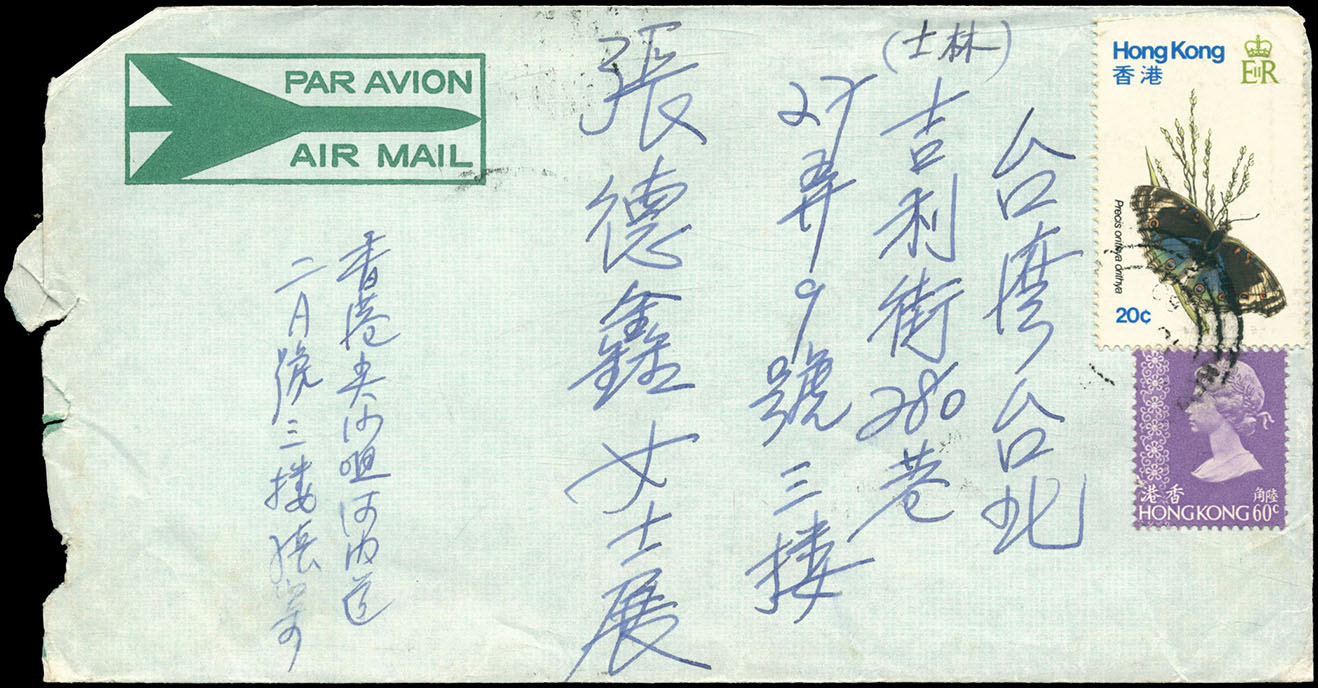 PAR AVION
AIR MAIL
Hong Kong
香港
EIIR
Precis orithya orithya
20c
港香
角陸
HONG KONG 60c
台湾台北
(士林)吉利街280巷
27弄9號三樓
張德鑫女士展
香港尖沙咀河内道
二A號三楼張寄